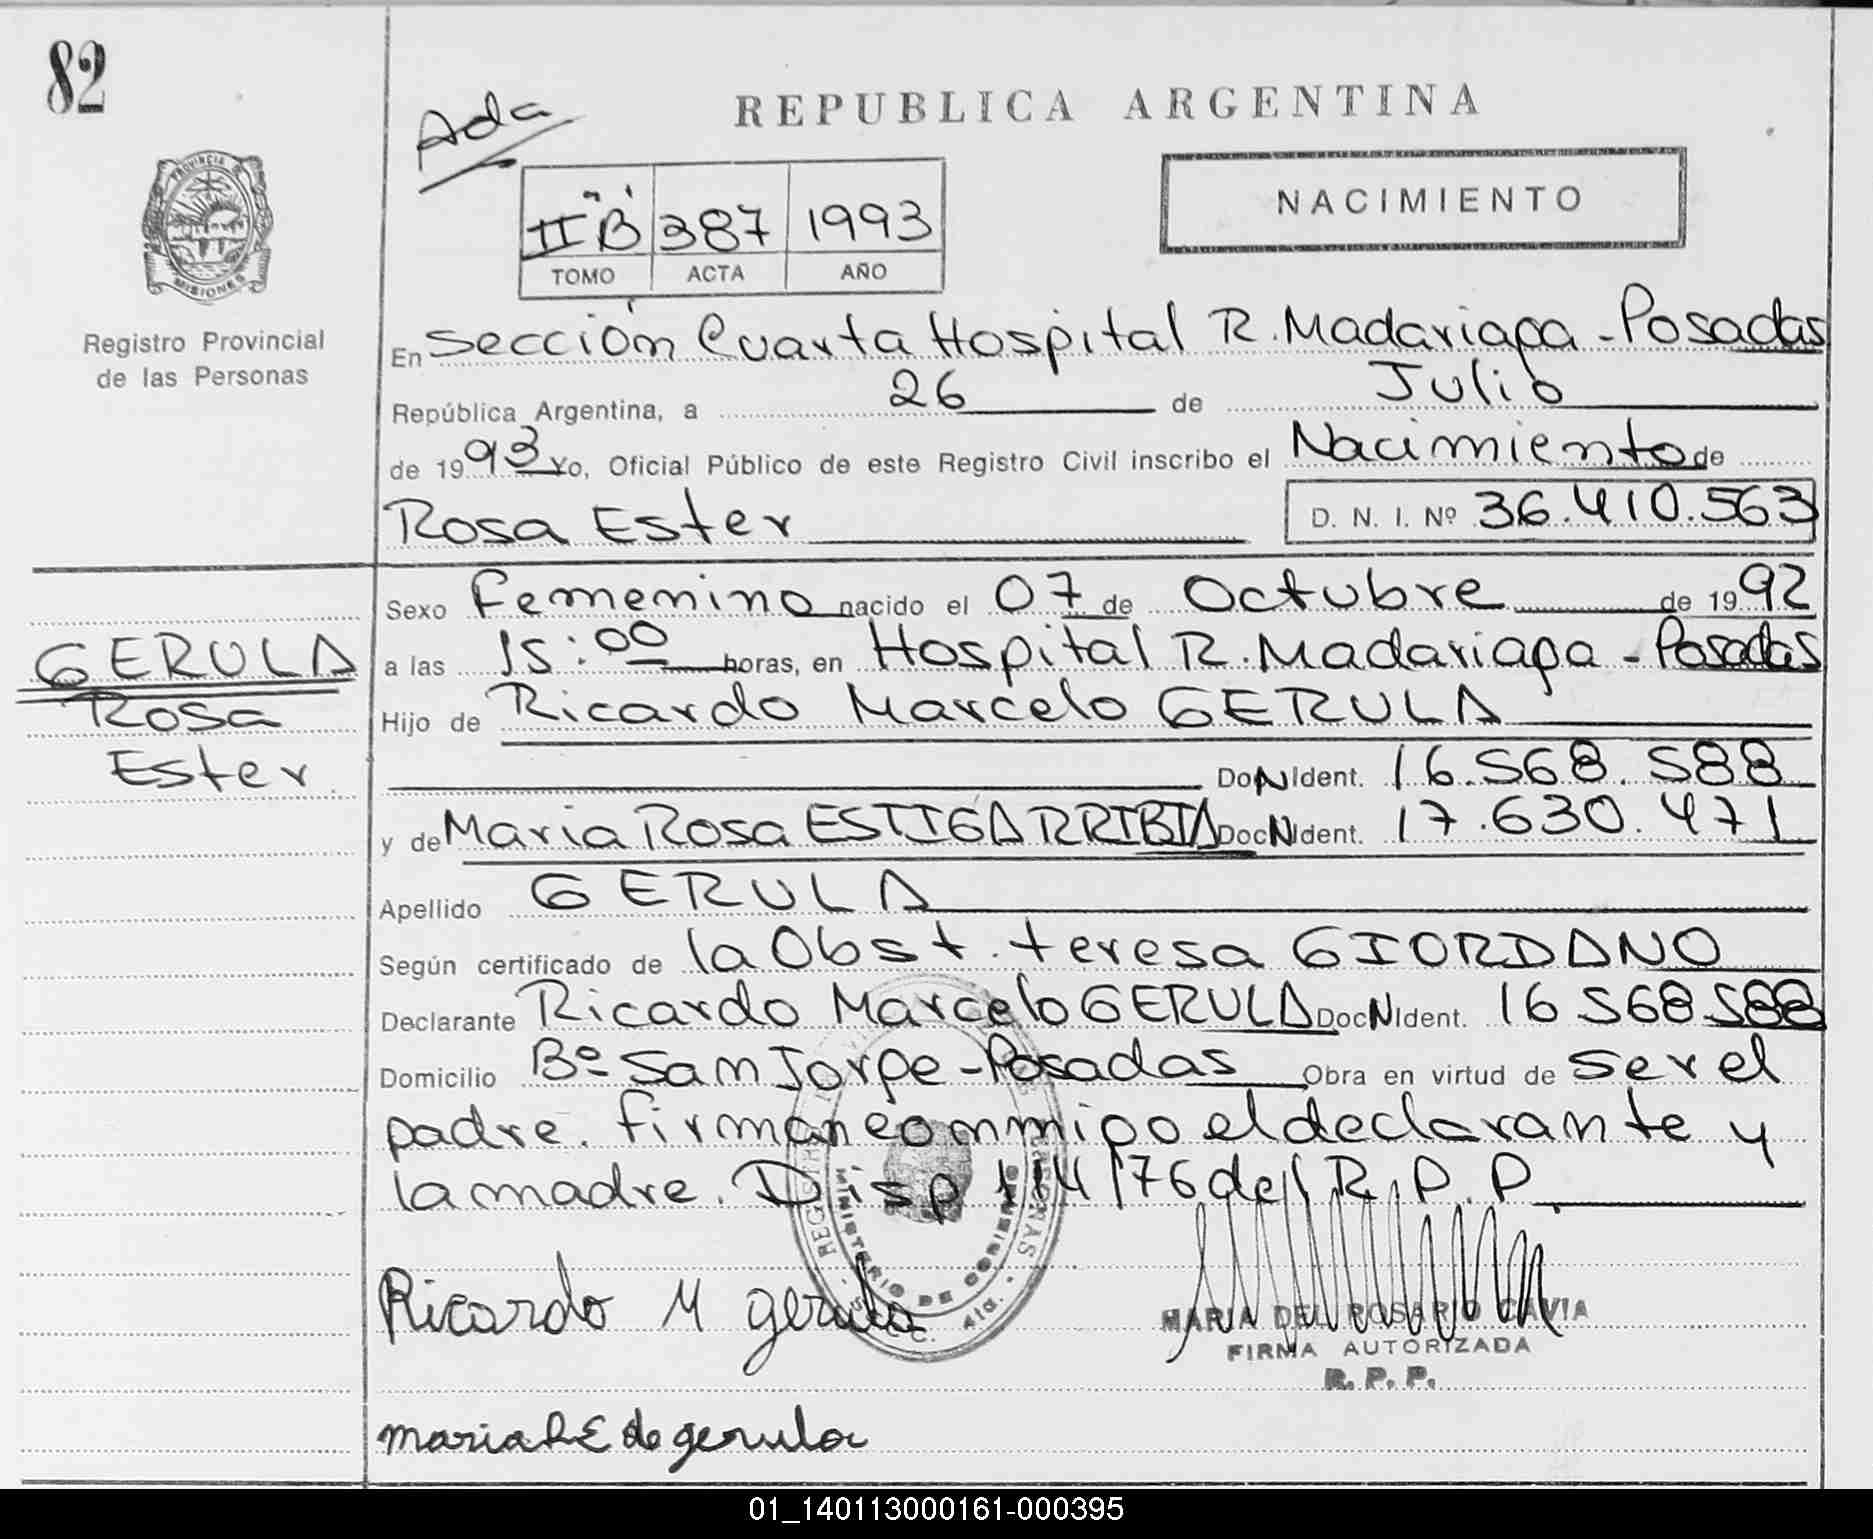 82
Ada
REPUBLICA ARGENTINA
NACIMIENTO
II "B" 387 1993
TOMO ACTA AÑO
PROVINCIA DE MISIONES
Registro Provincial
de las Personas
En Sección Cuarta Hospital R. Madariaga - Posadas
República Argentina, a 26 de Julio
de 1993 Yo, Oficial Público de este Registro Civil inscribo el Nacimiento de
Rosa Ester D. N. I. Nº 36.410.563
Sexo Femenino nacido el 07 de Octubre de 1992
GERULA
Rosa
Ester
a las 15:00 horas, en Hospital R. Madariaga - Posadas
Hijo de Ricardo Marcelo GERULA
DoNIdent. 16.568.588
y de Maria Rosa ESTIGARRIBIA DocNIdent. 17.630.471
Apellido GERULA
Según certificado de la Obst. teresa GIORDANO
Declarante Ricardo Marcelo GERULA DocNIdent. 16 568 588
Domicilio Bº San Jorge - Posadas Obra en virtud de ser el
padre. firman conmigo el declarante y
la madre. Disp 114/76 del R.P.P.
MINISTERIO DE GOBIERNO
Ricardo M gerula
MARIA DEL ROSARIO CAVIA
FIRMA AUTORIZADA
R. P. P.
maria R E de gerula
01_140113000161-000395